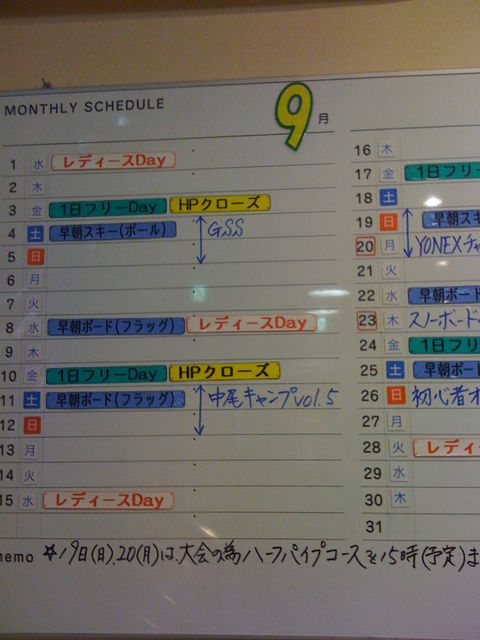 MONTHLY SCHEDULE
9月
1 水 レディースDay
2 木
3 金 1日フリーDay HPクローズ
4 土 早朝スキー(ポール) GSS
5 日
6 月
7 火
8 水 早朝ボード(フラッグ) レディースDay
9 木
10 金 1日フリーDay HPクローズ
11 土 早朝ボード(フラッグ) 中尾キャンプvol.5
12 日
13 月
14 火
15 水 レディースDay
16 木
17 金 1日フリ
18 土
19 日 早朝スキ
20 月 YONEXチャ
21 火
22 水 早朝ボード
23 木 スノーボード
24 金 1日フリ
25 土 早朝ボー
26 日 初心者
27 月
28 火 レディ
29 水
30 木
31
memo ☆19日(日).20(月)は、大会の為ハーフパイプコースを15時(予定)ま